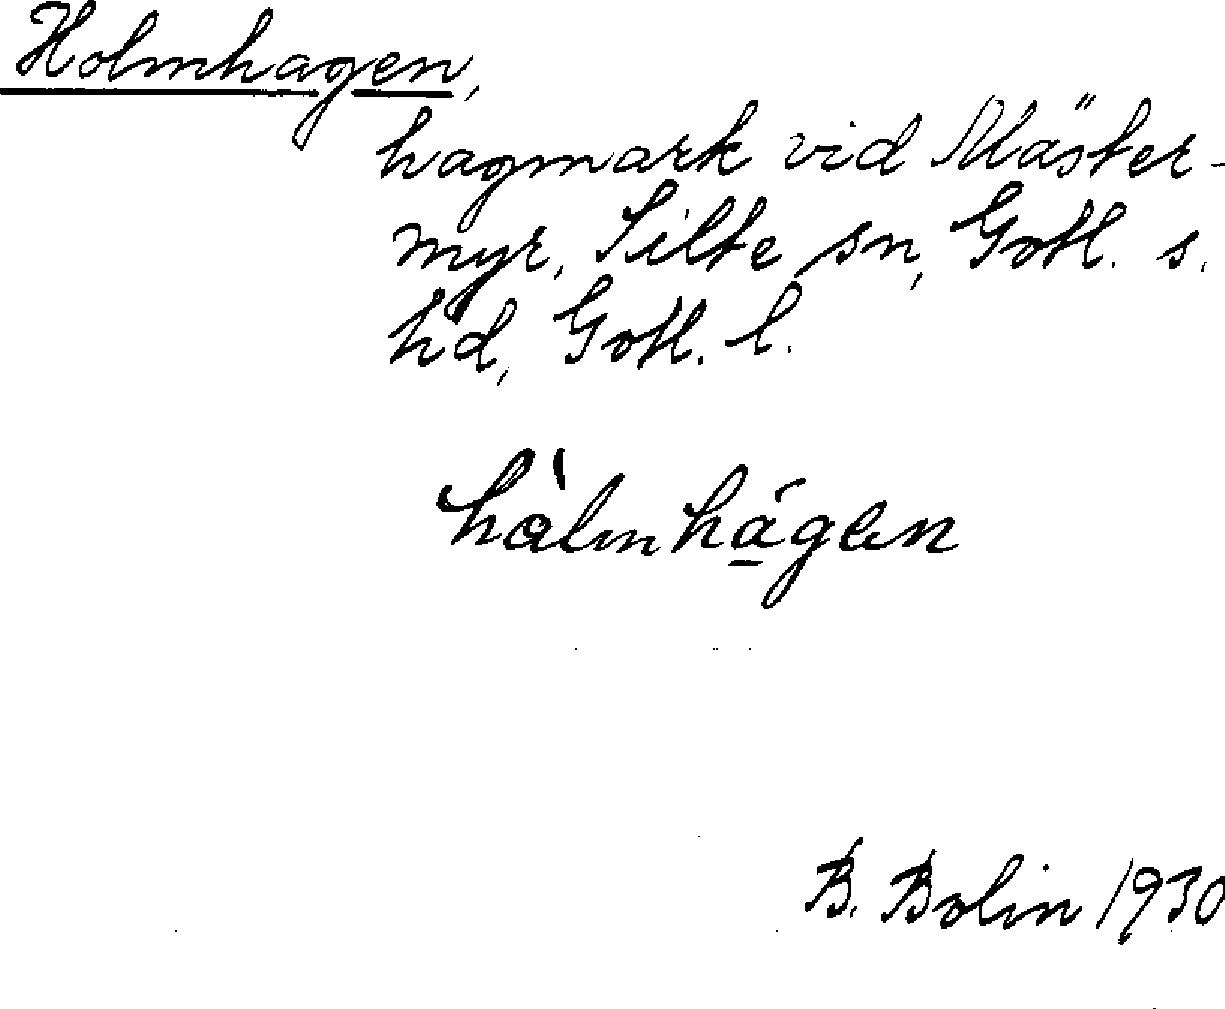 Holmhagen,
hagmark vid Mäster-
myr, Silte sn, Gotl. s.
hd, Gotl. l.
hàlmhágen
B. Bolin 1930